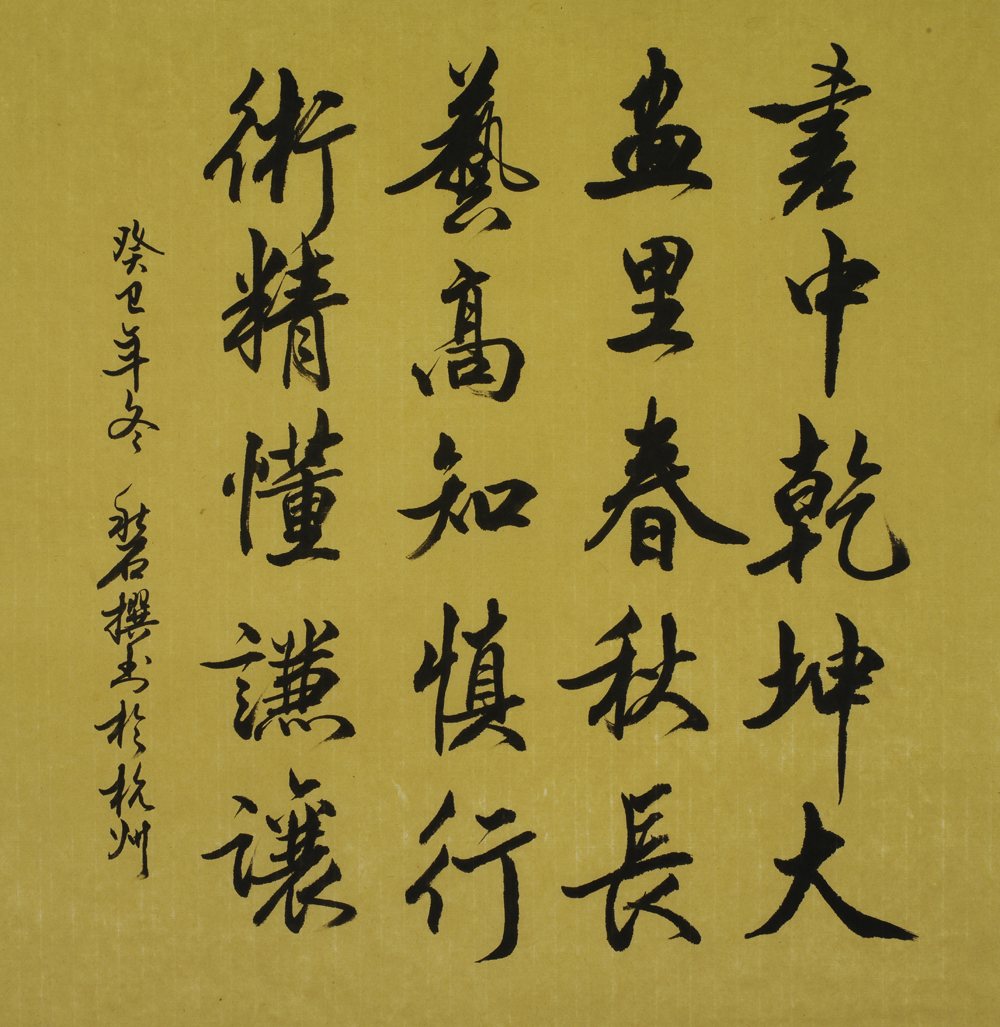 書中乾坤大
畫里春秋長
藝高知慎行
術精懂謙讓
癸卯年冬 磐石撰書於杭州